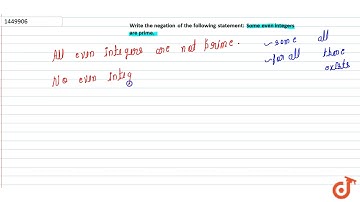 1449906
Write the negation of the following statement: Some even integers
are prime.
All even integers are not prime.
some all
for all there
exists
No even integ
doubtnut